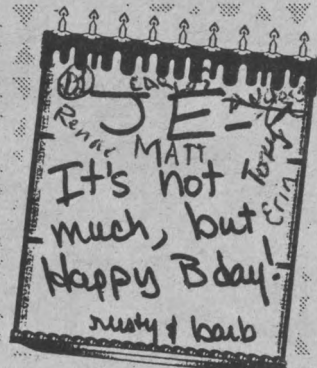 JE-
Renae
MATT
Tony
Erin
It's not
much, but
Happy Bday!
rusty & barb